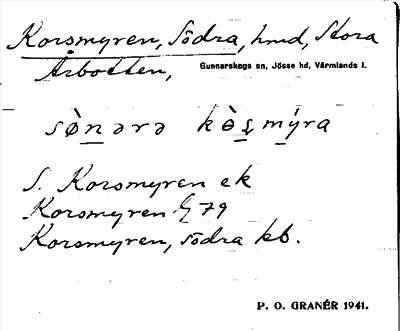 Korsmyren, Södra, hmd, Stora
Årbotten, Gunnarskogs sn, Jösse hd, Värmlands l.
sø̀nərə kɵ̀smýra
S. Korsmyren ek
Korsmyren 79
Korsmyren, södra kb.
P. O. GRANÉR 1941.